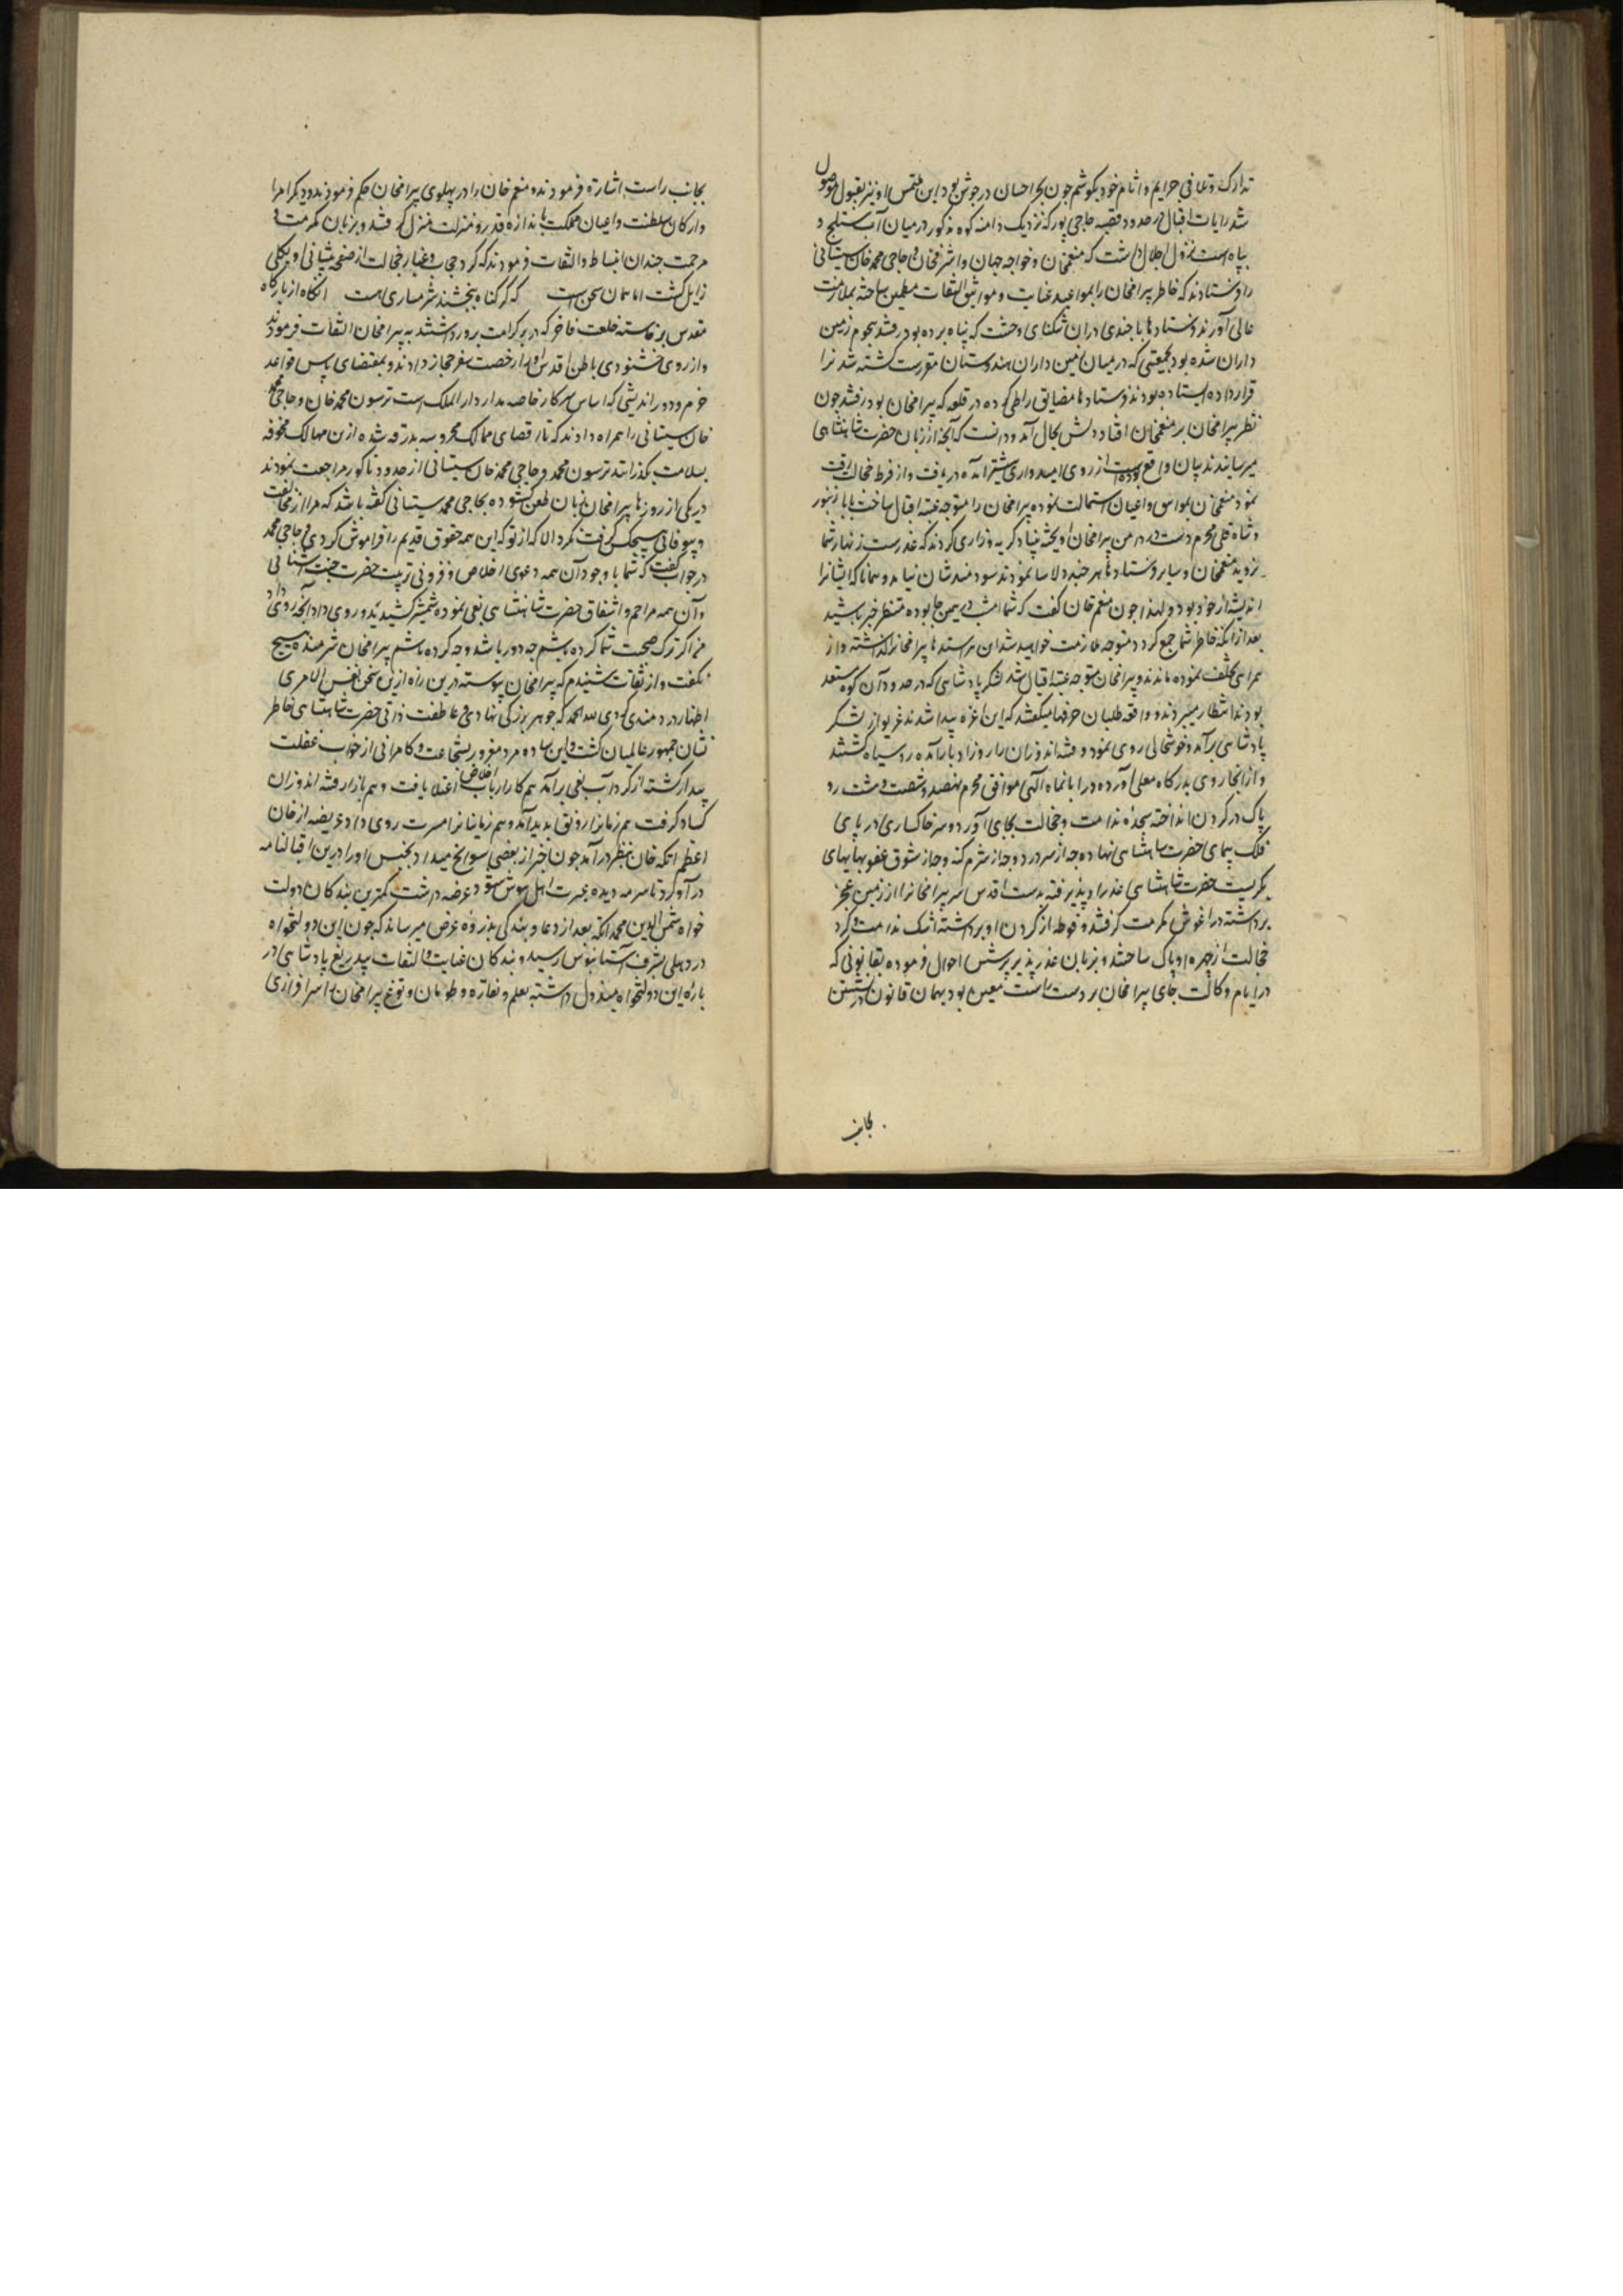 تدارک و تلافی جرایم و اثام خود بکوشم چون بحر احسان در جوش بود این ملتمس او نیز بقبول موصول
شد رایات اقبال در حدود قصبه حاجی پور که نزدیک دامنه کوه مذکور در میان آب ستلج و
بیاه است نزول اجلال داشت که منعمخان و خواجه جهان و اشرفخان و حاجی محمد خان سیستانی
را فرستادند که خاطر بیرامخان را بمواعید عنایت و مواثیق التفات مطمین ساخته بملازمت
عالی آورند فرستادها با چندی دران تنکنای وحشت که پناه برده بود رفتند هجوم زمین
داران شده بود بجمعیتی که در میان زمین داران هندوستان مقررست کشته شدنرا
قرار داده ایستاده بودند فرستادها مضایق را طی کرده در قلعه که بیرامخان بود رفتند چون
نظر بیرامخان بر منعمخان افتاد دلش بحال آمد و دانست که آنچه از زبان حضرت شاهنشاهی
میرسانیدند بیان واقع بوده است از روی امیدواری پیشتر آمده دریافت و از فرط خجالت رقت
نمود منعمخان بمواسق و اعیان استمالت نموده بیرامخان را متوجه عتبه اقبال ساخت بابا زنبور
و شاه قلی محرم دست در دامن بیرامخان آویخته بنیاد کریه و زاری کردند که غدرست زنهار شما
نروید منعمخان و سایر فرستادها هر چند دلاسا نمودند سودمند شان نیامد و همانا که ایشانرا
اندیشه از خود بود و لهذا چون منعم خان کفت که شما امشب در همین جا بوده منتظر خبر باشید
بعد ازانکه خاطر شما جمع کردد متوجه ملازمت خواهید شد ان هراسیدها بیرامخانرا کذاشته و از
همراهی تخلف نموده ماندند و بیرامخان متوجه عتبه اقبال شد لشکر پادشاهی که در حدود آن کوه مستعد
بودند انتظار میبردند و واقعه طلبان حرفها میکفتند که این اعزه پیدا شدند غریو از لشکر
پادشاهی برآمد و خوشحالی روی نمود و فتنه اندوزان را روز ادبار آمده رو سیاه کشتند
و از انجا روی بدرکاه معلی آورده در ابانماه آلهی موافق محرم نهصد و شصت و هشت رو
پاک در کردن انداخته سجده ندامت و خجالت بجای آورد و سر خاکساری در پای
فلک پیمای حضرت شاهنشاهی نهاده چه از سر درد و چه از شرم کنه و چه از شوق عفو بهایهای
بکریست حضرت شاهنشاهی عذر او پذیرفته بدست اقدس سر بیرامخانرا از زمین عجز
برداشته در اغوش مکرمت کرفتند و فوطه از کردن او برداشته اشک ندامت و کرد
خجالت از چهره او پاک ساختند و بزبان عذر پذیر پرسش احوال فرموده بقانونی که
در ایام وکالت جای بیرامخان بر دست راست معین بود بهمان قانون در نشستن
بجانب
بجانب راست اشارة فرمودند و منعم خان را در پهلوی بیرامخان حکم فرمودند و دیکر امرا
و ارکان سلطنت و اعیان مملکت باندازه قدر و منزلت منزل کرفتند و بزبان مکرمت و
مرحمت چندان انبساط و التفات فرمودند که کرد حجاب و غبار خجالت از صفحه پیشانی او بکلی
زایل کشت اما همان سخن است که کر کناه ببخشند شرمساری هست انکاه از بارکاه
مقدس برخاسته خلعت فاخر که در بر کرامت پرور داشتند به بیرامخان التفات فرمودند
و از روی خشنودی باطن اقدس او را رخصت سفر حجاز دادند و بمقتضای پاس قواعد
حزم و دور اندیشی که اساس سرکار خاصه مدار دار الملک است ترسون محمد خان و حاجی محمد
خان سیستانی را همراه دادند که تا اقصای ممالک محروسه بدرقه شده ازین مهالک مخوفه
بسلامت بکذرانند ترسون محمد و حاجی محمد خان سیستانی از حدود ناکور مراجعت نمودند
در یکی از روزها بیرامخان زبان طعن کشوده بحاجی محمد سیستانی کفته باشد که مرا از مخالفت
و بیوفایی هیچکس کرفت نکرد الا که از تو که این همه حقوق قدیم را فراموش کردی حاجی محمد
در جواب کفت که شما با وجود آن همه دعوی اخلاص و فزونی تربیت حضرت جنت آشیانی
و آن همه مراحم و اشفاق حضرت شاهنشاهی بغی نموده شمشیر کشیدید و روی داد آنچه روی داد
من اکر ترک صحبت شما کرده باشم چه دور باشد و چه کرده باشم بیرامخان شرمنده هیچ
نکفت و از ثقات شنیدم که بیرامخان پیوسته درین راه ازین سخن نفس الامری
اظهار دردمندی کردی لله الحمد که جوهر بزرکی نهادی و عاطفت ذاتی حضرت شاهنشاهی خاطر
نشان جمهور عالمیان کشت و این ساده مرد مغرور بشجاعت و کامرانی از خواب غفلت
بیدار کشته از کرداب بغی برآمد هم کار ارباب اخلاص اعتلا یافت و هم بازار فتنه اندوزان
کساد کرفت هم زمانرا رونق پدید آمد و هم زمانیانرا مسرت روی داد عریضه از خان
اعظم اتکه خان بنظر درآمد چون خبر از بعضی سوانح میداد بجنس او را درین اقبالنامه
در آورد تا سرمه دیده عبرت اهل هوش شود عرضه داشت کمترین بندکان دولت
خواه شمس الدین محمد اتکه بعد از دعا و بندکی بذروه عرض میرساند که چون این دولتخواه
در دهلی بشرف آستانبوس رسید و بندکان عنایت و التفات بیدریغ پادشاهی در
باره این دولتخواه مبذول داشته بعلم و نقاره و طومان و توغ بیرامخان سرافرازی